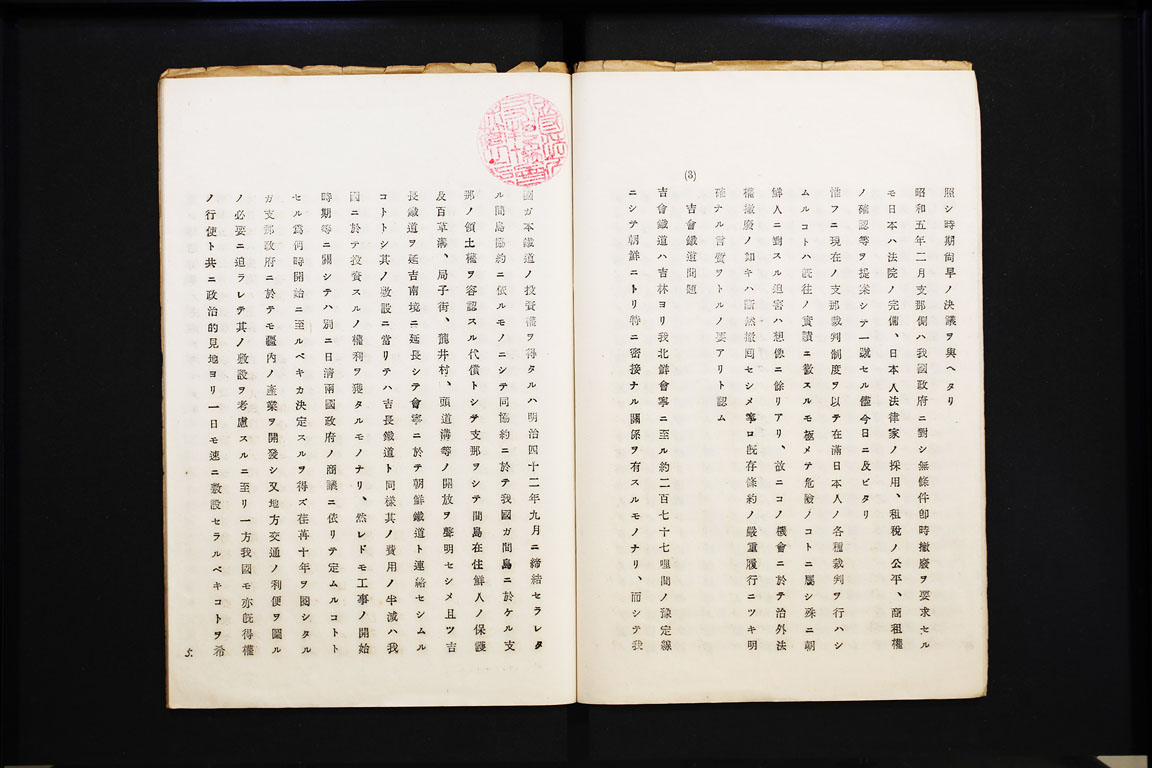 照シ時期尙早ノ決議ヲ與ヘタリ
昭和五年二月支那側ハ我國政府ニ對シ無條件卽時撤廢ヲ要求セル
モ日本ハ法院ノ完備、日本人法律家ノ採用、租稅ノ公平、商租權
ノ確認等ヲ提案シテ一蹴セル儘今日ニ及ビタリ
惟フニ現在ノ支那裁判制度ヲ以テ在滿日本人ノ各種裁判ヲ行ハシ
ムルコトハ旣往ノ實蹟ニ徵スルモ極メテ危險ノコトニ屬シ殊ニ朝
鮮人ニ對スル迫害ハ想像ニ餘リアリ、故ニコノ機會ニ於テ治外法
權撤廢ノ如キハ斷然撤囘セシメ寧ロ旣存條約ノ嚴重履行ニツキ明
確ナル言質ヲトルノ要アリト認ム
(3) 吉會鐵道問題
吉會鐵道ハ吉林ヨリ我北鮮會寧ニ至ル約二百七十七哩間ノ豫定線
ニシテ朝鮮ニトリ特ニ密接ナル關係ヲ有スルモノナリ、而シテ我
國ガ本鐵道ノ投資權ヲ得タルハ明治四十二年九月ニ締結セラレタ
ル間島協約ニ依ルモノニシテ同協約ニ於テ我國ガ間島ニ於ケル支
那ノ領土權ヲ容認スル代償トシテ支那ヲシテ間島在住鮮人ノ保護
及百草溝、局子街、龍井村、頭道溝等ノ開放ヲ聲明セシメ且ツ吉
長鐵道ヲ延吉南境ニ延長シテ會寧ニ於テ朝鮮鐵道ト連絡セシムル
コトトシ其ノ敷設ニ當リテハ吉長鐵道ト同樣其ノ費用ノ半減ハ我
國ニ於テ投資スルノ權利ヲ獲タルモノナリ、然レドモ工事ノ開始
時期等ニ關シテハ別ニ日淸兩國政府ノ商議ニ依リテ定ムルコトト
セル爲何時開始ニ至ルベキカ決定スルヲ得ズ荏苒十年ヲ閱シタル
ガ支那政府ニ於テモ疆內ノ產業ヲ開發シ又地方交通ノ利便ヲ圖ル
ノ必要ニ迫ラレテ其ノ敷設ヲ考慮スルニ至リ一方我國モ亦旣得權
ノ行使ト共ニ政治的見地ヨリ一日モ速ニ敷設セラルベキコトヲ希
5.